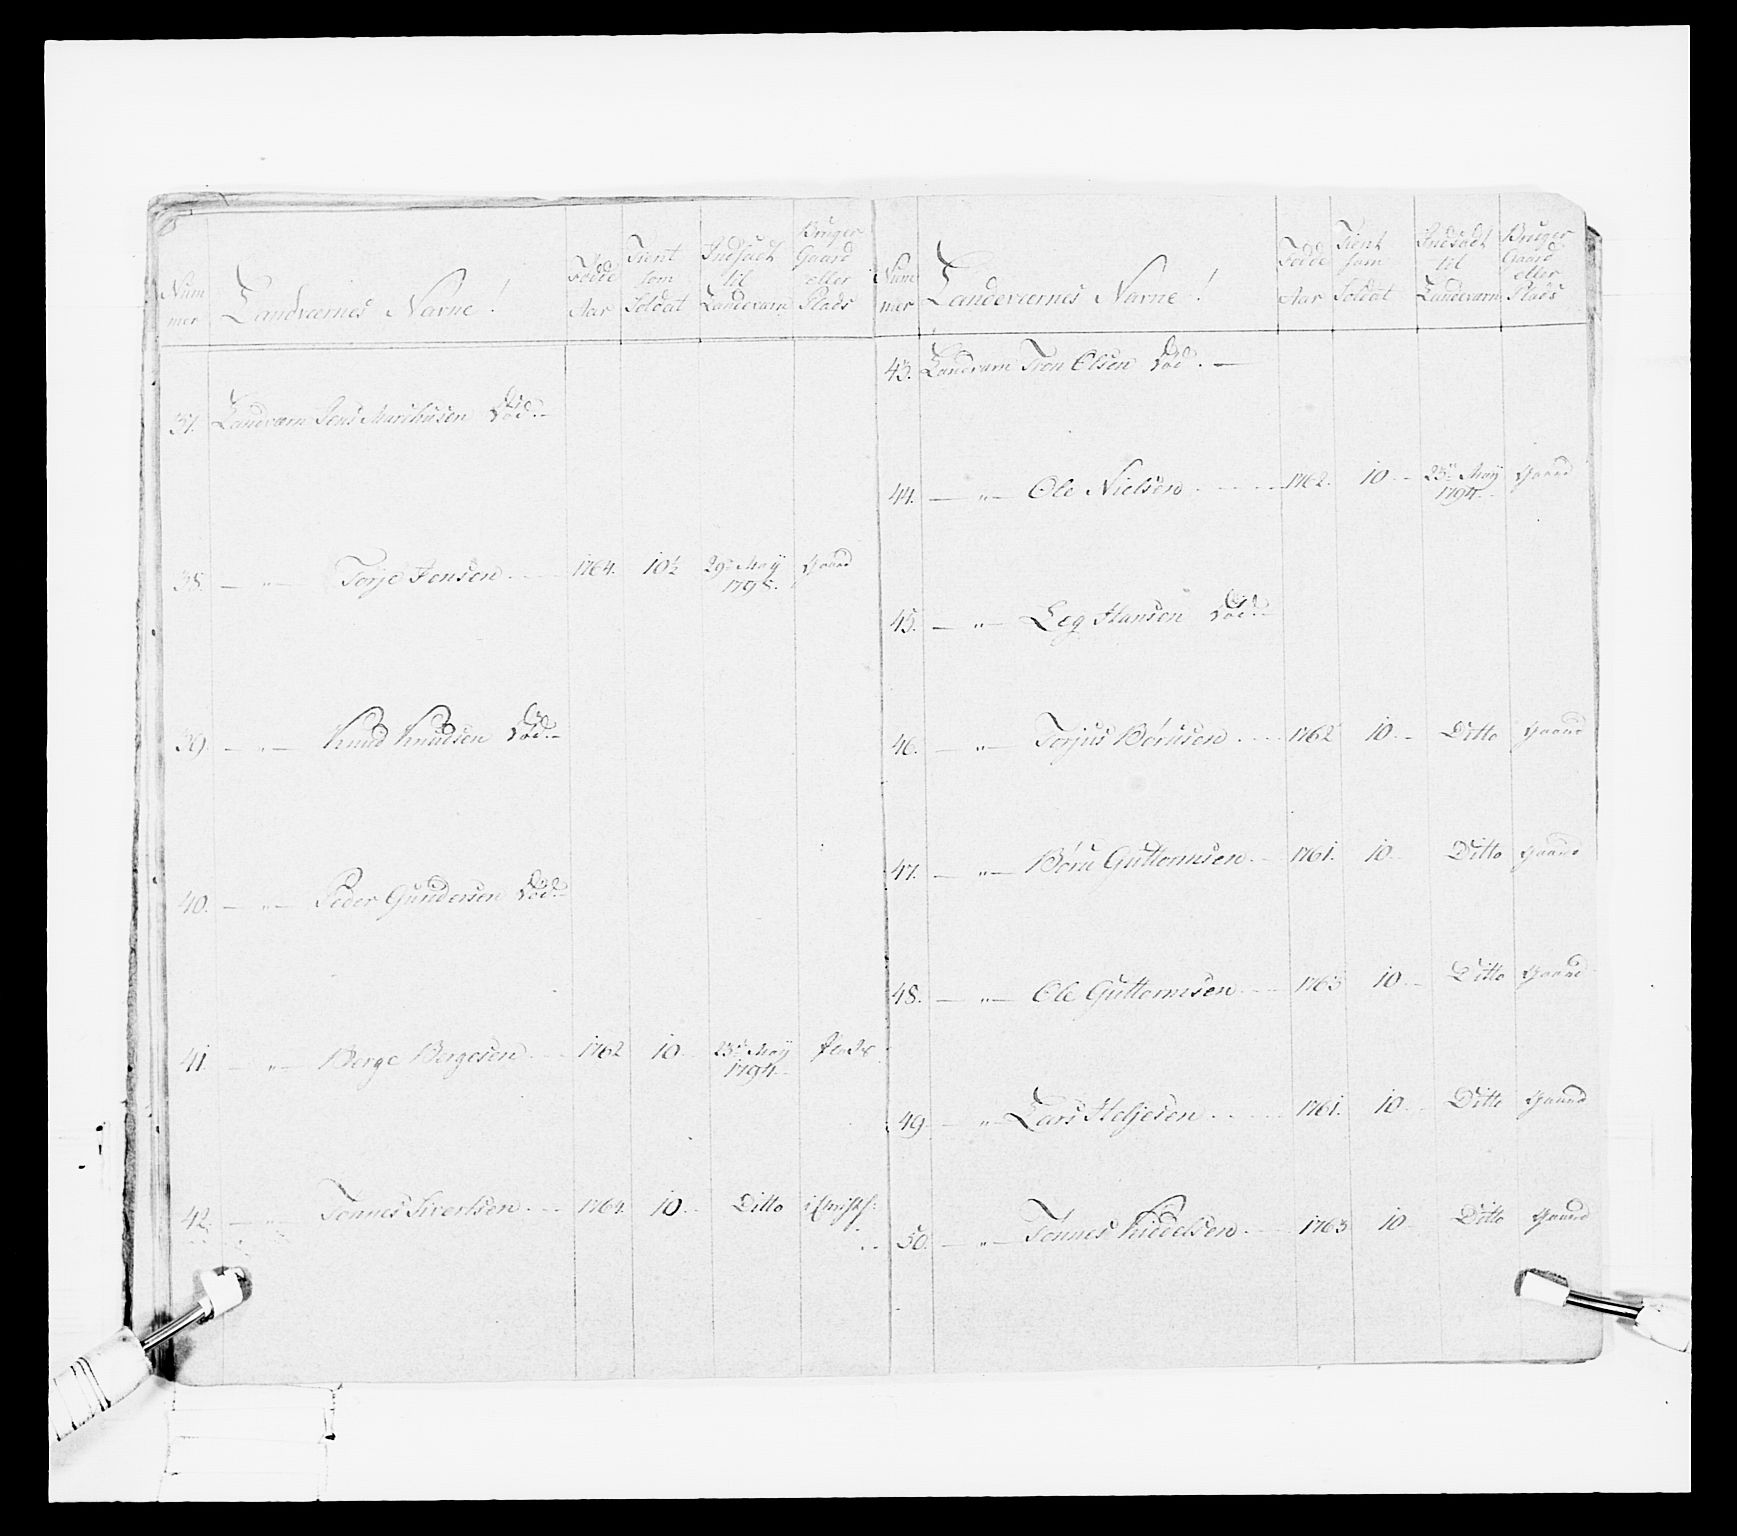 Num
mer
Landværnes Navne!
Fødde
Aar
Tient
som
Soldat
Indsadt
til
Landeværn
Bruger
Gaard
eller
Plads
37. Landværn Jens Død.
38. — „ — Torje Jensen 1764. 10½ 29de May Gaard
1795.
39. — „ — Knud Knudsen Død.
40. — „ — Peder Gundersen Død.
41. — „ — Berge Bergesen 1762 10 23de May Plads
1794.
42. — „ — Tønnes Sivertsen 1764. 10 Ditto
Num
mer
Landeværnes Navne!
Fødde
Aar
Tient
som
Soldat
Indsadt
til
Landeværn
Bruger
Gaard
eller
Plads
43. Landværn Tron Olsen Død. —
44. — „ — Ole Nielsen 1762. 10 23de May Gaard
1794.
45. — „ — Leg Hansen Død.
46. — „ — Torjus Børusen 1762 10 Ditto Gaard
47. — „ — Børu Guttormsen 1761. 10 Ditto Gaard
48. — „ — Ole Guttormsen 1763 10 Ditto Gaard
49. — „ — Lars Heljesen 1761. 10 Ditto Gaard
50. — „ — Tønnes Kiedelsen 1763 10 Ditto Gaard